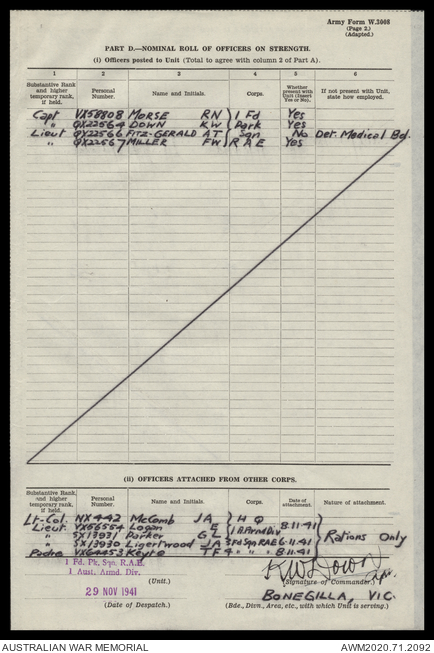 Army Form W.3008
(Page 2.)
(Adapted.)
PART D.—NOMINAL ROLL OF OFFICERS ON STRENGTH.
(i) Officers posted to Unit (Total to agree with column 2 of Part A).
1 2 3 4 5 6
Substantive Rank and higher temporary rank, if held. Personal Number. Name and Initials. Corps. Whether present with Unit (Insert Yes or No). If not present with Unit, state how employed.
Capt VX58808 MORSE RN 1 Fd Yes
" QX22564 DOWN KW Park Yes
Lieut QX22566 FITZ-GERALD AT Sqn No Det. Medical Bd.
" QX22567 MILLER FW RAE Yes
(ii) OFFICERS ATTACHED FROM OTHER CORPS.
Substantive Rank, and higher temporary rank, if held. Personal Number. Name and Initials. Corps. Date of attachment. Nature of attachment.
Lt-Col. NX442 McComb JA H Q
Lieut. VX56554 Logan E 1 A Armd Div 8.11.41
" SX13931 Parker G L Rations Only
" SX13930 JA 3 Fd Sqn RAE 6.11.41
Padre VX64453 TF 4 " " 8.11.41
1 Fd. Pk. Sqn. R.A.E.
1 Aust. Armd. Div.
(Unit.)
KW Down Capt.
(Signature of Commander.)
29 NOV 1941
BONEGILLA, VIC.
(Date of Despatch.)
(Bde., Divn., Area, etc., with which Unit is serving.)
AUSTRALIAN WAR MEMORIAL
AWM2020.71.2092